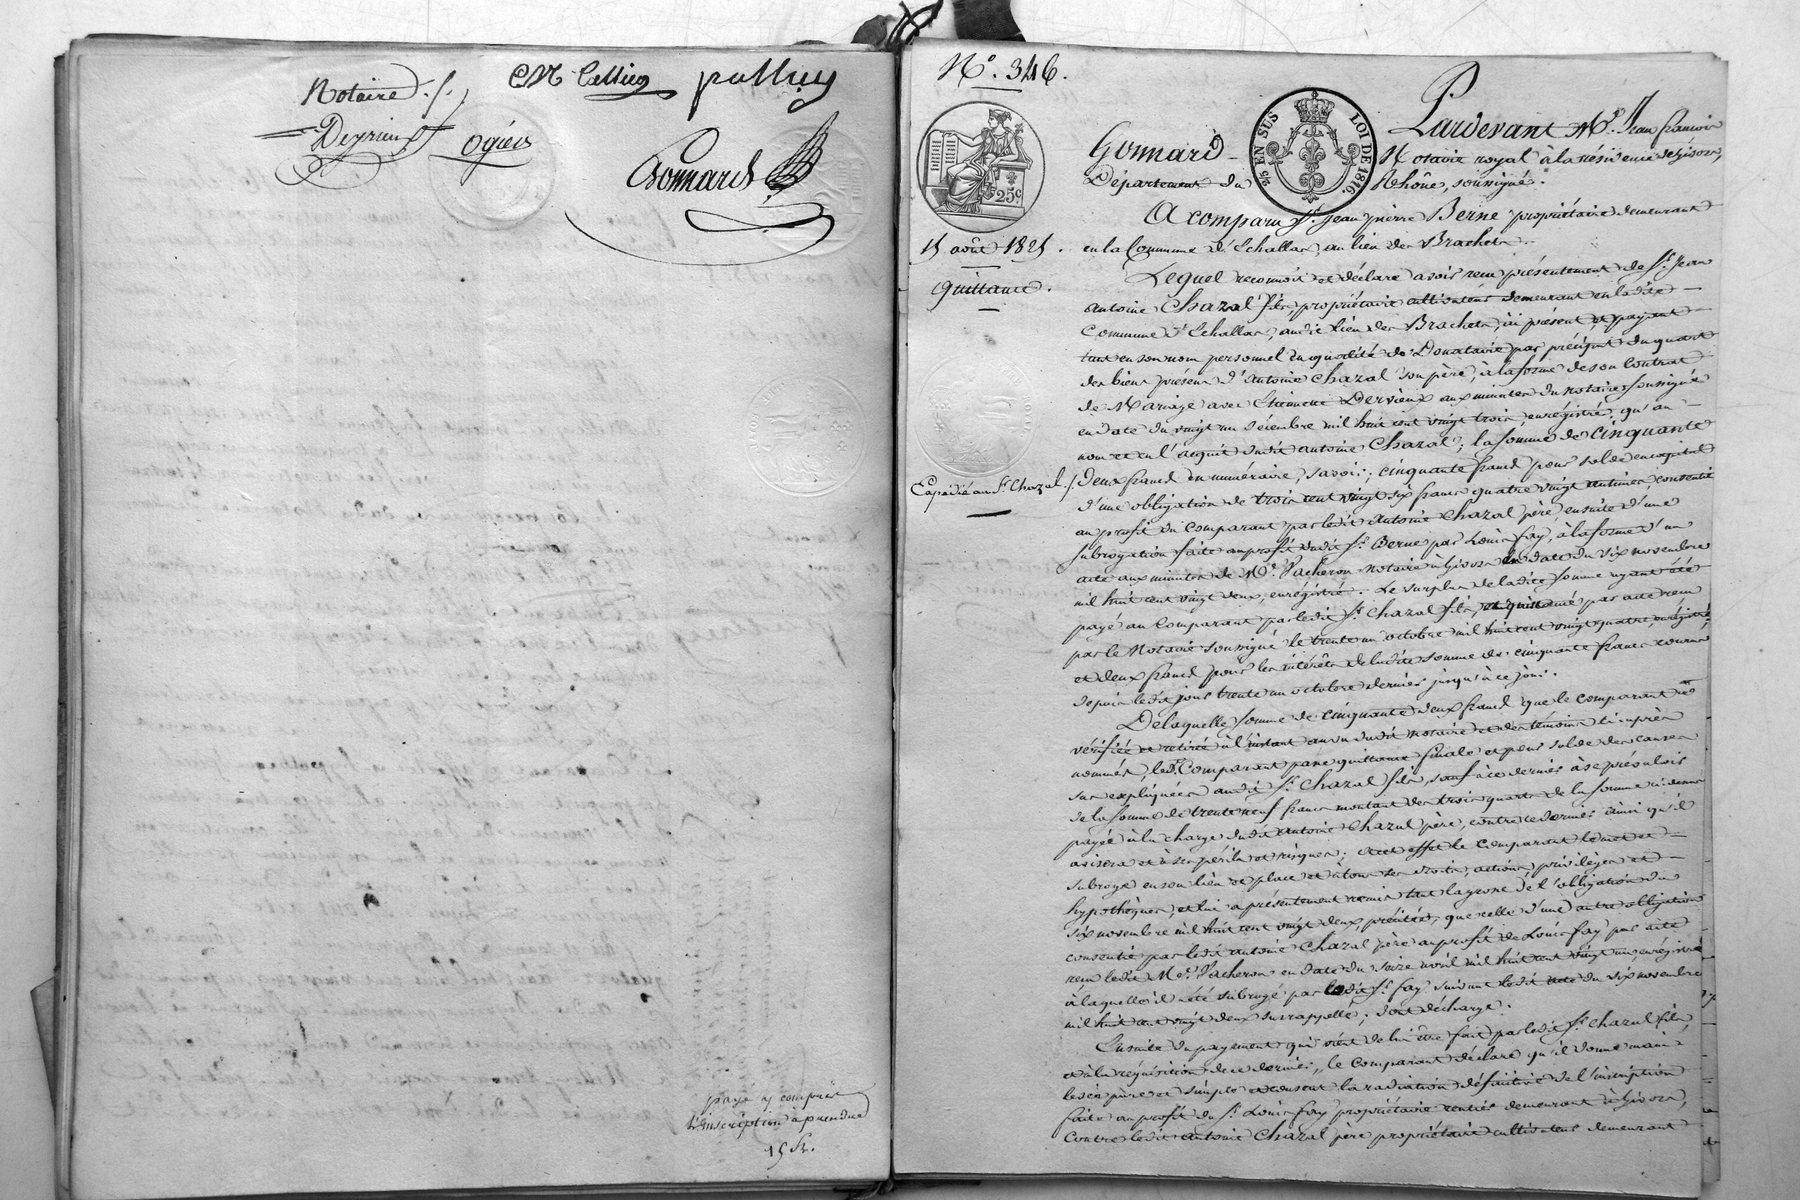 Notaire
CM Cellier pattieu
Deyrieux Ogier
Gonnard
payé y compris
l'inscription à prendre
15 fr.
N.° 346.
25 c
15 août 1825.
Quittance.
Expédié au Sr. Chazal.
2/5 EN SUS LOI DE 1816.
Pardevant Me. Jean françois
Gonnard Notaire royal à la résidence de Givors,
Département du Rhône, soussigné.
A comparu Sr. Jean pierre Berne propriétaire demeurant
en la Commune d'Echallas, au lieu des Brachets.
Lequel reconnoit et déclare avoir reçu présentement de Sr. Jean
antoine Chazal fils, propriétaire cultivateur demeurant en la dite
Commune d'Echallas, audit lieu des Brachets, ici présent, et payant
tant en son nom personnel en qualité de Donataire par préciput du quart
des biens présens d'antoine Chazal son père, à la forme de son Contrat
de Mariage avec Etiennette Dervieux aux minutes du notaire soussigné
en date du vingt un décembre mil huit cent vingt trois, enregistré, qu'au
nom et en l'acquit dudit antoine Chazal; la somme de cinquante
deux francs en numéraire, savoir; cinquante francs pour solde en capital
d'une obligation de trois cent vingt six francs quatre vingt centimes, consentie
au profit du Comparant par ledit antoine Chazal père ensuite d'une
subrogation faite au profit dudit Sr. Berne par Louis fay, à la forme d'un
acte aux minutes de Me. Vacheron notaire à Givors en date du six novembre
mil huit cent vingt deux, enregistré. Le surplus de la dite somme ayant été
payé au Comparant par ledit Sr. Chazal fils, et quittancé par acte reçu
par le Notaire soussigné le trente un octobre mil huit cent vingt quatre, enregistré,
et deux francs pour les intérêts de ladite somme de cinquante francs courus
depuis ledit jour trente un octobre dernier jusqu'à ce jour.
De laquelle somme de cinquante deux francs que le comparant a
vérifiée et retirée à l'instant au vu dudit notaire et des témoins ci après
nommés, ledt. Comparant passe quittance finale et pour solde des causes
sus expliquées audit Sr. Chazal fils, sauf à ce dernier à se prévaloir
de la somme de trente neuf francs montant des trois quarts de la somme ci dessus
payée à la charge dudit antoine Chazal père, contre ce dernier ainsi qu'il
avisera et à ses périls et risques; à cet effet le Comparant le met et
subroge en son lieu et place et à tous ses droits, actions, privilèges et
hypothèques, et lui a présentement remis tant la grosse de l'obligation du
six novembre mil huit cent vingt deux, précitée, que celle d'une autre obligation
consentie par ledit antoine Chazal père au profit de Louis fay par acte
reçu ledit Me. Vacheron en date du seize avril mil huit cent vingt un, enregistré
à laquelle il a été subrogé par ledit Sr. fay suivant ledit acte du six novembre
mil huit cent vingt deux sus rappellé; dont décharge.
Ensuite du payement qui vient de lui être fait par ledit Sr. Chazal fils,
et à la réquisition de ce dernier, le comparant déclare qu'il donne main
levée pure et simple et consent la radiation définitive de l'inscription
faite au profit du Sr. Louis fay propriétaire rentier demeurant à Givors,
Contre ledit antoine Chazal père propriétaire cultivateur demeurant